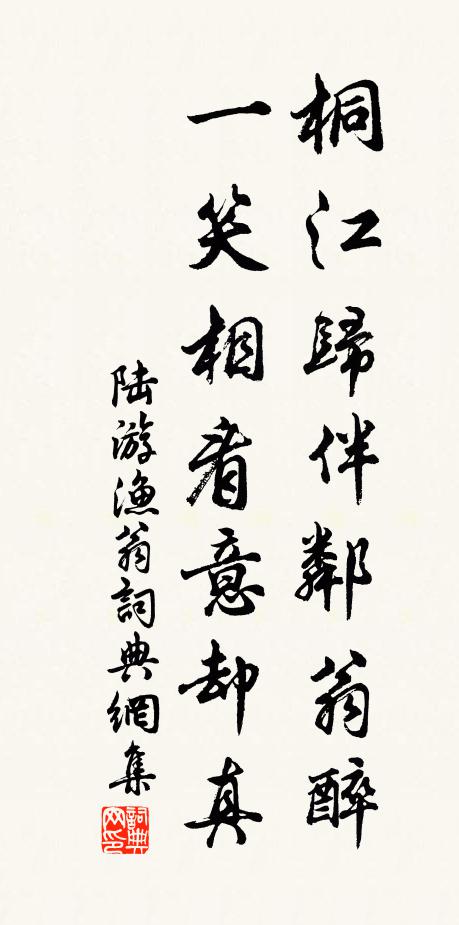 桐江歸伴鄰翁醉
一笑相看意却真
陸游漁翁詞典網集
詞典網印